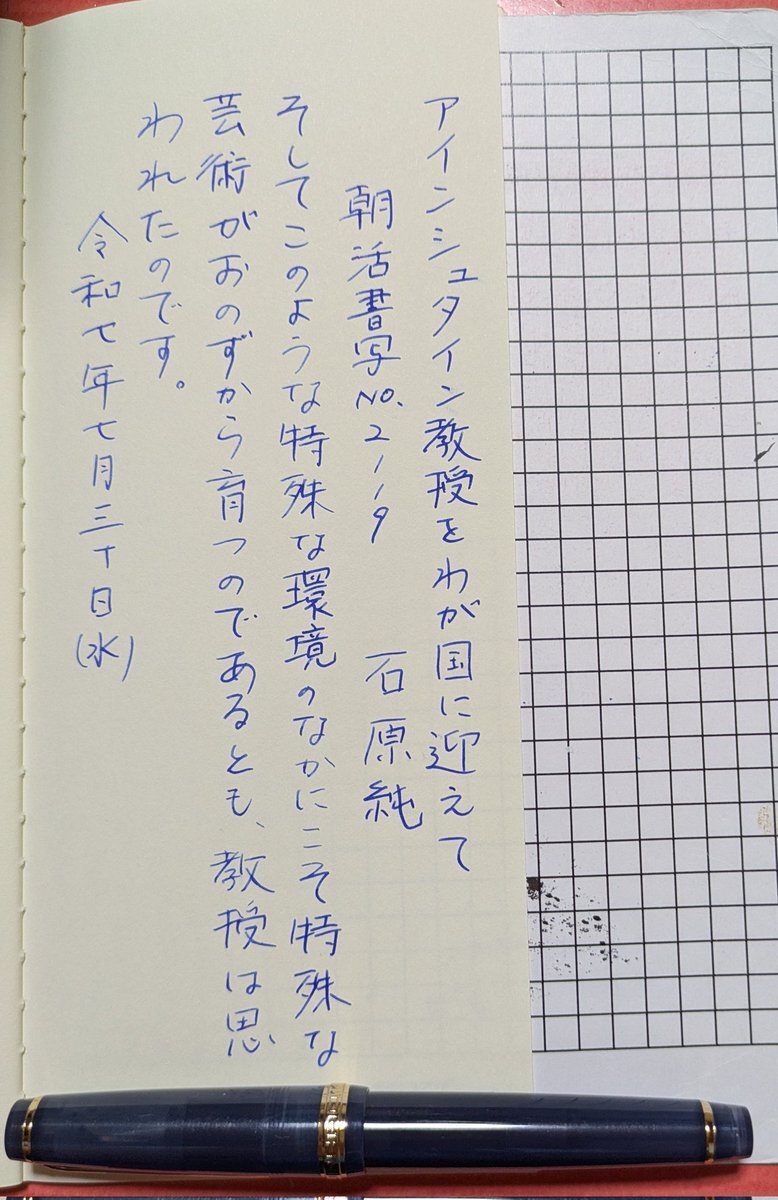 アインシュタイン教授をわが国に迎えて
朝活書写 No.2119 石原純
そしてこのような特殊な環境のなかにこそ特殊な
芸術がおのずから育つのであるとも、教授は思
われたのです。
令和七年七月三十日(水)